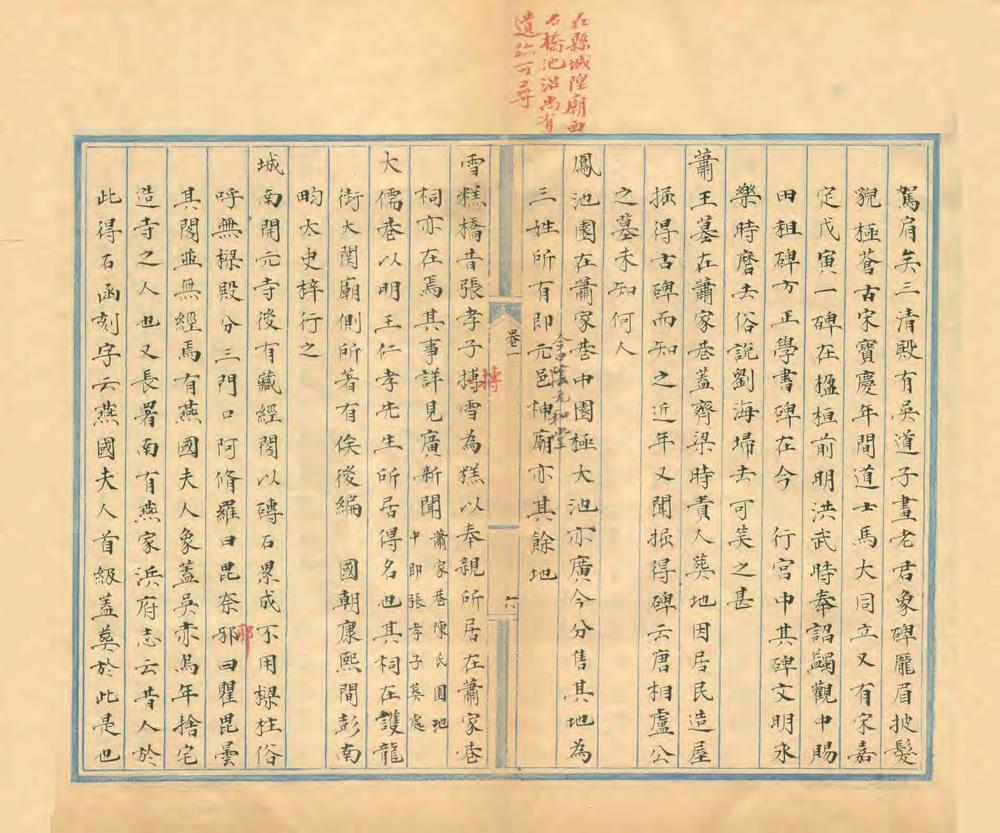 在縣城隍廟西
石橋池沼尚有
遺跡可尋
駕肩矣三清殿有吳道子畫老君象碑龐眉披髮
貌極蒼古宋寶慶年間道士馬大同立又有宋嘉
定戊寅一碑在楹桓前明洪武時奉詔蠲觀中賜
田租碑方正學書碑在今 行宮中其碑文明永
樂時磨去俗說劉海埽去可笑之甚
蕭王墓在蕭家巷蓋齊梁時貴人葬地因居民造屋
掘得古碑而知之近年又聞掘得碑云唐相盧公
之墓未知何人
鳳池園在蕭家巷中園極大池亦廣今分售其地為
三姓所有即元邑神廟亦其餘地
卷一
六
雪糕橋昔張孝子摶雪為糕以奉親所居在蕭家巷
摶
祠亦在焉其事詳見廣新聞蕭家巷陳氏園地
中即張孝子葬處
大儒巷以明王仁孝先生所居得名也其祠在護龍
街大関廟側所著有俟後編 國朝康熙間彭南
畇太史梓行之
城南開元寺後有藏經閣以磚石累成不用樑柱俗
呼無樑殿分三門口阿脩羅曰毘奈邪曰瞿毘曇
耶
其閣並無經焉有燕國夫人象蓋吳赤烏年捨宅
造寺之人也又長署南有燕家浜府志云昔人於
此得石函刻字云燕國夫人首級蓋葬於此是也